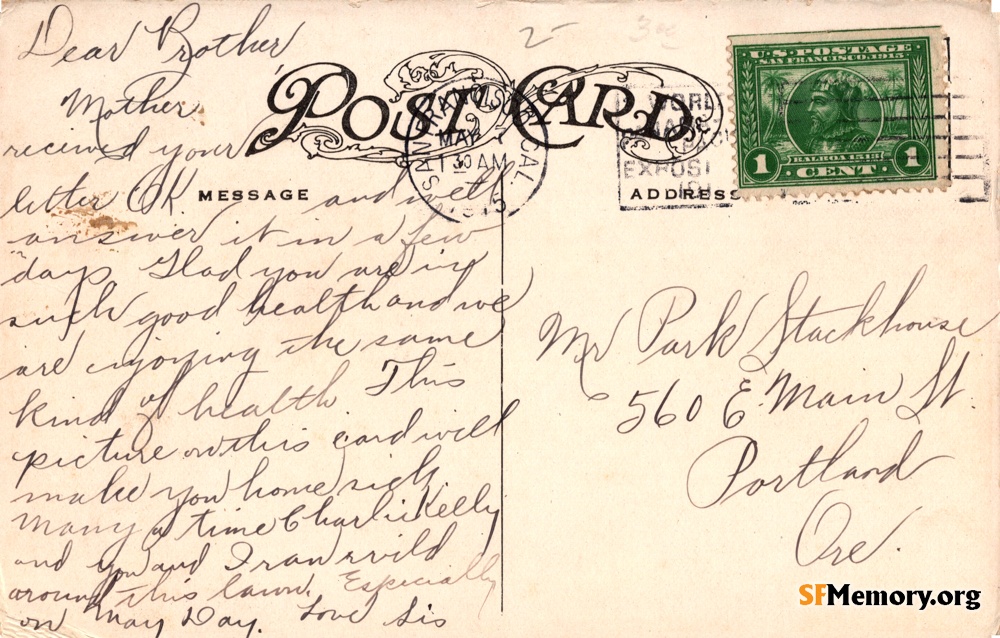 Dear Brother
Mother
received your
letter OK and will
answer it in a few
days. Glad you are in
such good health and we
are enjoying the same
kind of health. This
picture on this card will
make you home sick.
Many a time Charlie Kelly
and you and I ran wild
around this lawn. Especially
on May Day. Love Sis
POST CARD
MESSAGE
ADDRESS
2-
SAN FRANCISCO, CAL.
MAY
1 30 AM
1915
WORLD
EXPOSI
U.S. POSTAGE
SAN FRANCISCO, 1915
BALBOA 1513
1 CENT 1
Mr Park Stackhouse
560 E. Main St.
Portland
Ore.
SFMemory.org